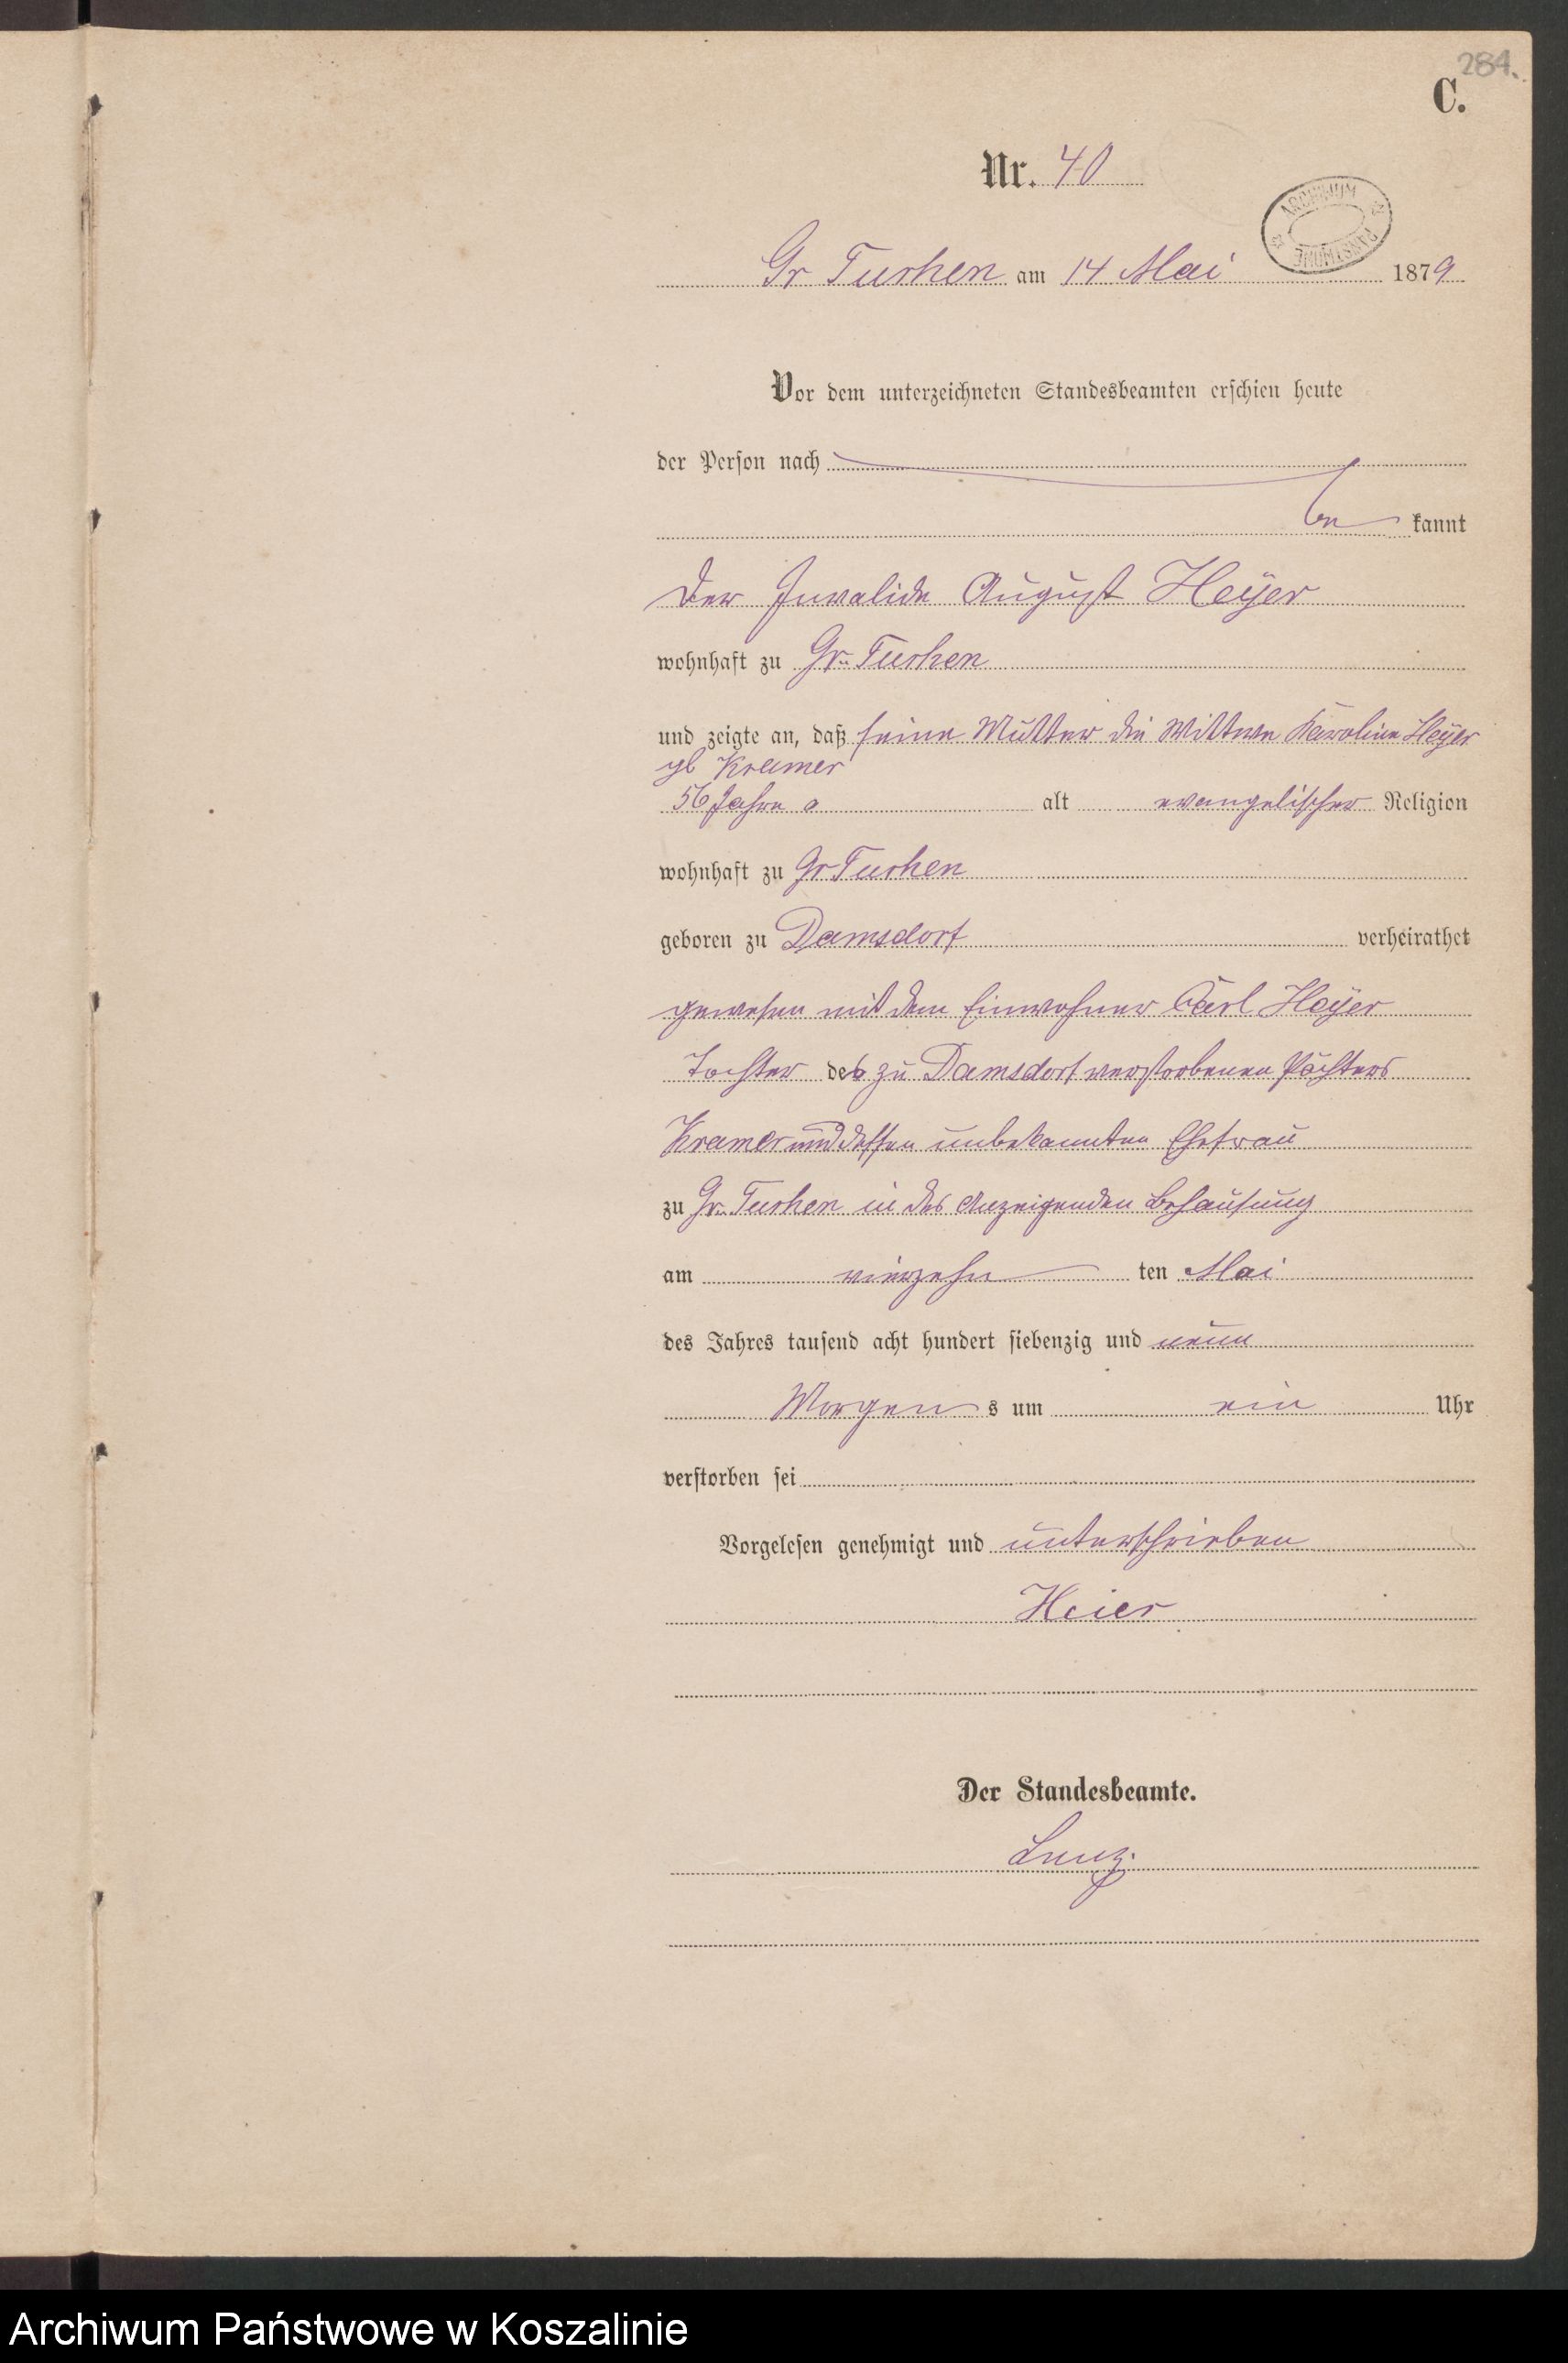 284.
C.
Nr. 40
ARCHIWUM PAŃSTWOWE
Gr Tuchen am 14 Mai 1879
Vor dem unterzeichneten Standesbeamten erschien heute
der Person nach
be kannt
Der Invalide August Heÿer
wohnhaft zu Gr. Tuchen
und zeigte an, daß seine Mutter die Wittwe Karoline Heÿer
gb Kramer
56 Jahre alt evangelischer Religion
wohnhaft zu Gr Tuchen
geboren zu Damsdorf verheirathet
gewesen mit dem Einwohner Carl Heÿer
Tochter des zu Damsdorf verstorbenen Pächters
Kramer und dessen unbekannten Ehefrau
zu Gr. Tuchen in des Anzeigenden Behausung
am vierzehn ten Mai
des Jahres tausend acht hundert siebenzig und neun
Morgen s um ein Uhr
verstorben sei
Vorgelesen genehmigt und unterschrieben
Heier
Der Standesbeamte.
Lenz.
Archiwum Państwowe w Koszalinie